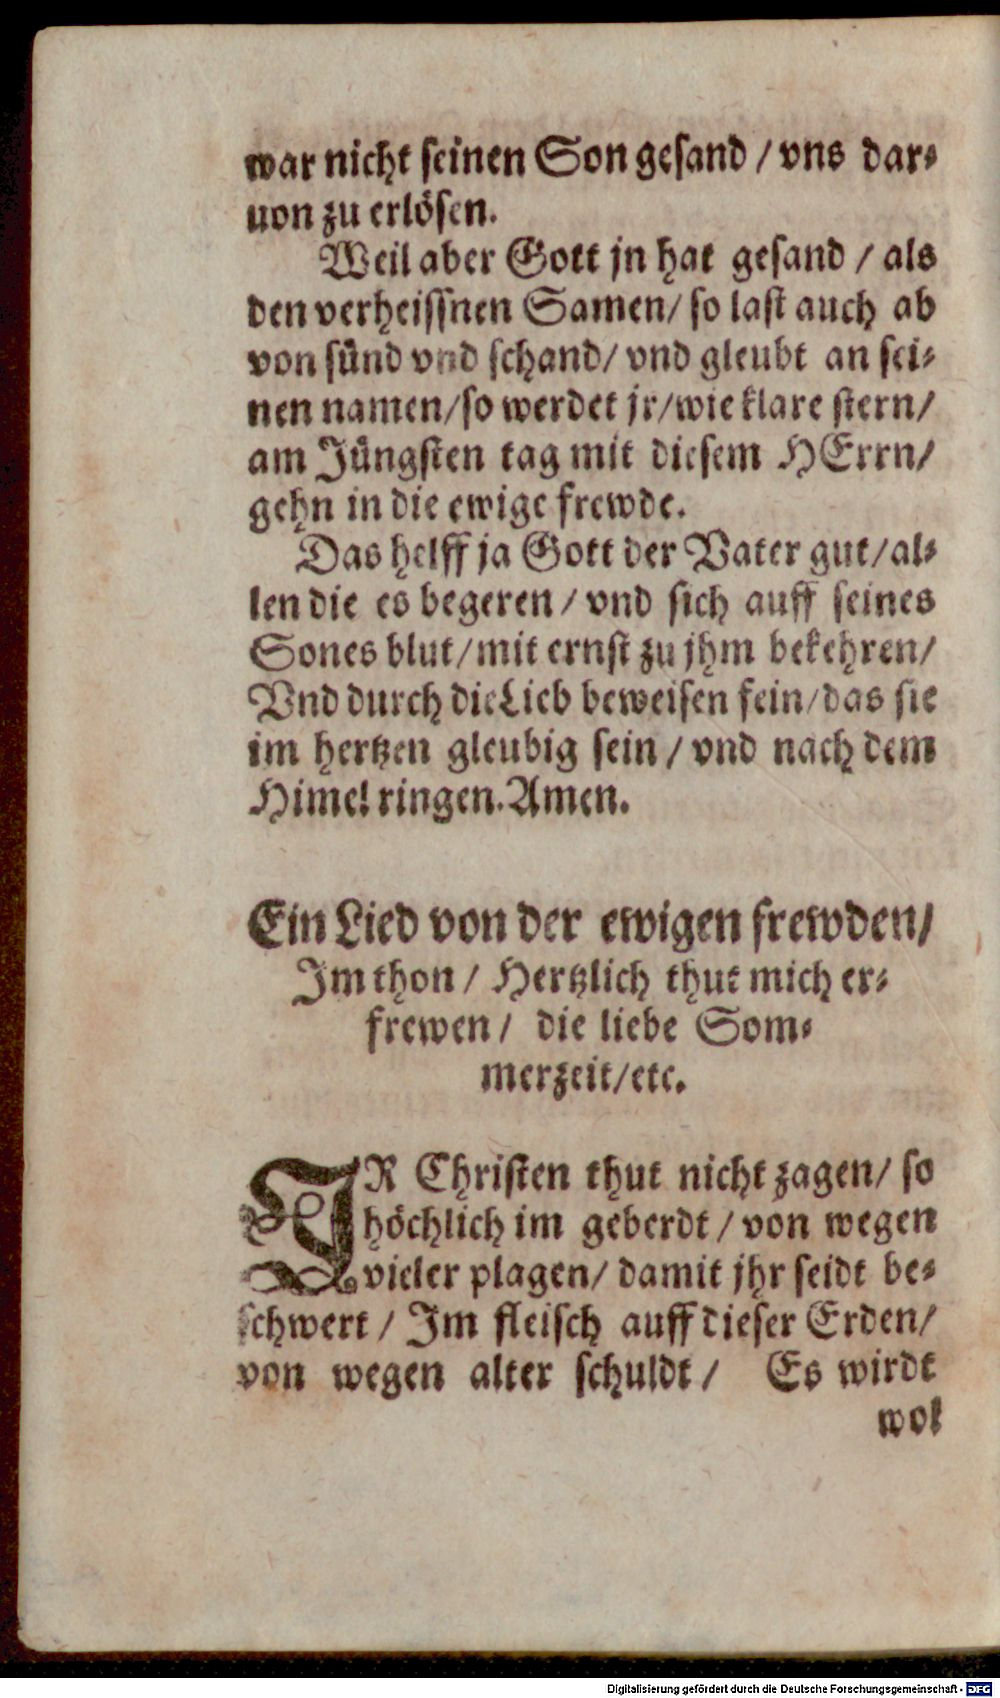 war nicht seinen Son gesand / vns dar⸗
uon zu erlösen.
Weil aber Gott jn hat gesand / als
den verheissnen Samen / so last auch ab
von sünd vnd schand / vnd gleubt an sei⸗
nen namen / so werdet jr / wie klare stern /
am Jüngsten tag mit diesem HErrn /
gehn in die ewige frewde.
Das helff ja Gott der Vater gut / al⸗
len die es begeren / vnd sich auff seines
Sones blut / mit ernst zu jhm bekehren /
Vnd durch die Lieb beweisen fein / das sie
im hertzen gleubig sein / vnd nach dem
Himel ringen. Amen.
Ein Lied von der ewigen frewden /
Im thon / Hertzlich thut mich er⸗
frewen / die liebe Som⸗
merzeit / etc.
IR Christen thut nicht zagen / so
höchlich im geberdt / von wegen
vieler plagen / damit jhr seidt be⸗
schwert / Im fleisch auff dieser Erden /
von wegen alter schuldt / Es wirdt
wol
Digitalisierung gefördert durch die Deutsche Forschungsgemeinschaft - DFG